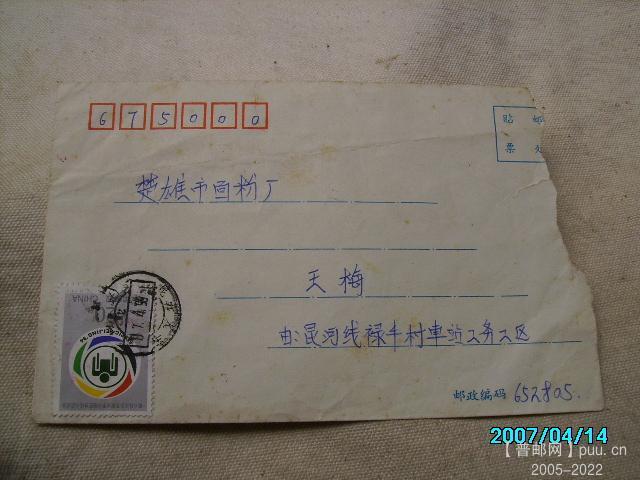 675000
贴 邮
票
楚雄市面粉厂
天梅
由:昆河线禄丰村車站工务工区
邮政编码 652805.
CHINA
2007/04/14
【普邮网】puu.cn
2005-2022